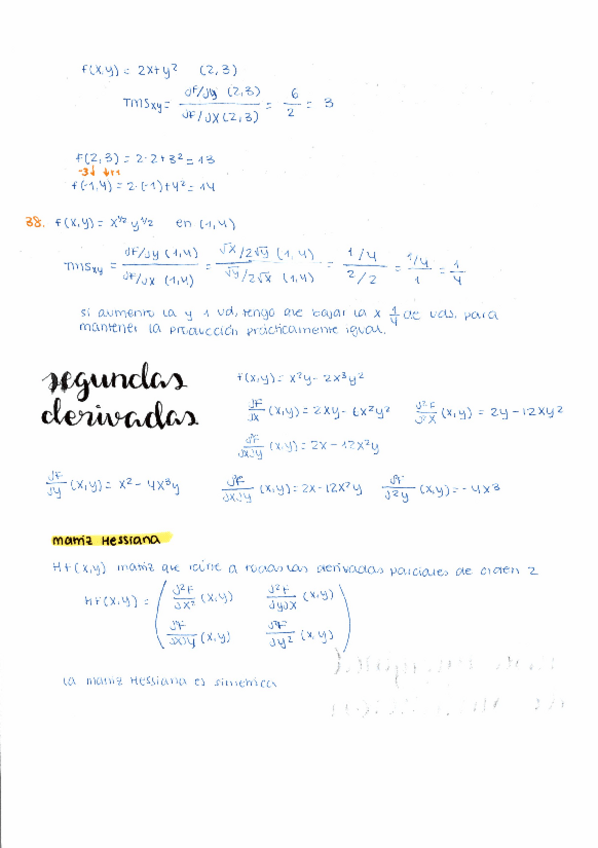 f(x,y) = 2x+y² (2,3)
TMSxy = ∂F/∂y (2,3) / ∂F/∂x (2,3) = 6/2 = 3
f(2,3) = 2·2+3² = 13
-3↓ ↓+1
f(-1,4) = 2·(-1)+4² = 14
38. f(x,y) = x^1/2 y^1/2 en (1,4)
TMSxy = ∂F/∂y (1,4) / ∂F/∂x (1,4) = √x/2√y (1,4) / √y/2√x (1,4) = 1/4 / 2/2 = 1/4 / 1 = 1/4
si aumento la y 1 ud, tengo que bajar la x 1/4 de uds. para
mantener la producción prácticamente igual.
segundas
derivadas
f(x,y) = x²y - 2x³y²
∂F/∂x (x,y) = 2xy - 6x²y² ∂²F/∂²x (x,y) = 2y - 12xy²
∂²F/∂x∂y (x,y) = 2x - 12x²y
∂F/∂y (x,y) = x² - 4x³y ∂²F/∂x∂y (x,y) = 2x - 12x²y ∂²F/∂²y (x,y) = -4x³
matriz Hessiana
Hf(x,y) matriz que reúne a todas las derivadas parciales de orden 2
Hf(x,y) = ( ∂²F/∂x² (x,y) ∂²F/∂y∂x (x,y)
∂²F/∂x∂y (x,y) ∂²F/∂y² (x,y) )
la matriz Hessiana es simétrica